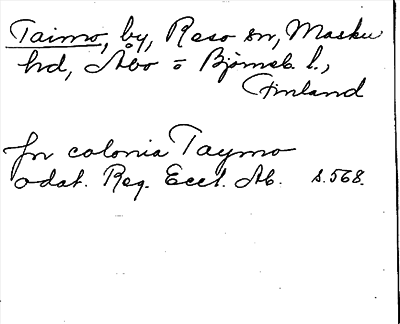 Taimo, by, Reso sn, Masku
hd, Åbo o Björneb. l.,
Finland
In colonia Taymo
odat. Reg. Eccl. Ab. s. 568.